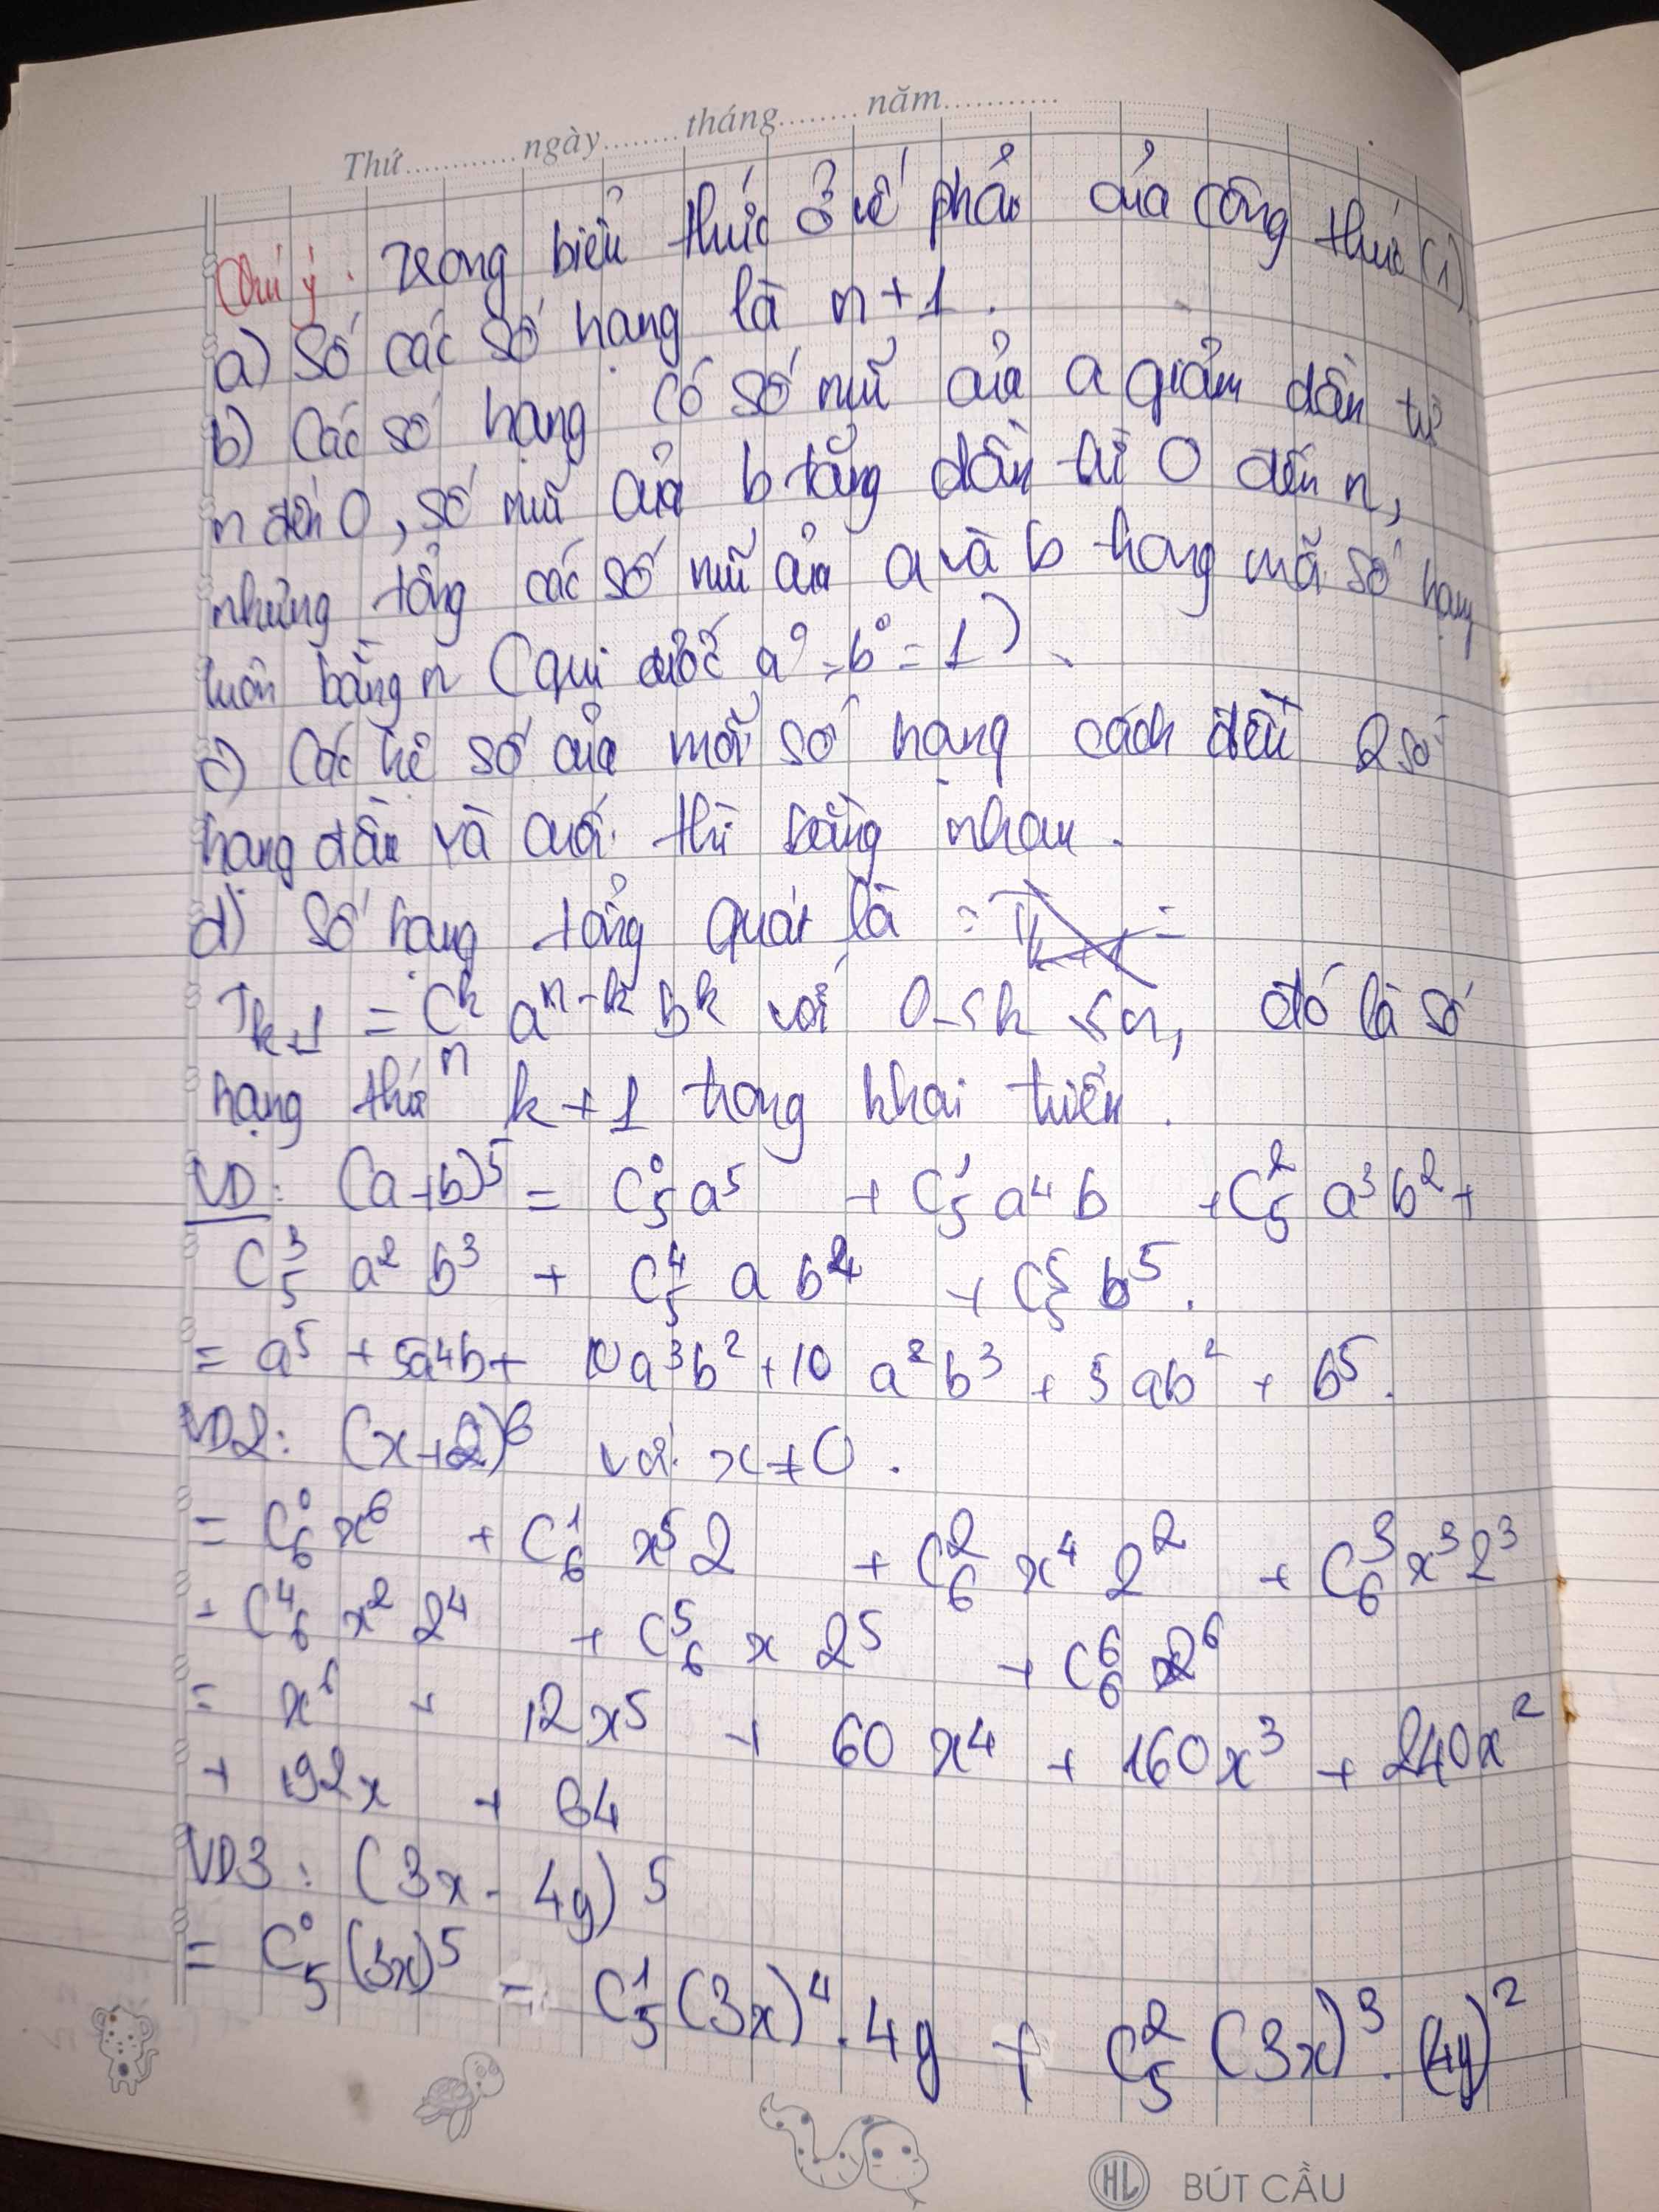 Thứ.......... ngày....... tháng........ năm...........
Chú ý: Trong biểu thức ở vế phải của công thức (1)
a) Số các số hạng là n+1.
b) Các số hạng có số mũ của a giảm dần từ
n đến 0, số mũ của b tăng dần từ 0 đến n,
nhưng tổng các số mũ của a và b trong mỗi số hạng
luôn bằng n (qui ước a⁰ = b⁰ = 1).
c) Các hệ số của mỗi số hạng cách đều 2 số
hạng đầu và cuối thì bằng nhau.
d) Số hạng tổng quát là :
T_{k+1} = C_n^k a^{n-k} b^k với 0 ≤ k ≤ n, đó là số
hạng thứ k+1 trong khai triển.
VD: (a+b)⁵ = C_5^0 a⁵ + C_5^1 a⁴ b + C_5^2 a³ b² +
C_5^3 a² b³ + C_5^4 a b⁴ + C_5^5 b⁵.
= a⁵ + 5a⁴b + 10a³b² + 10 a²b³ + 5 ab⁴ + b⁵.
VD2: (x+2)⁶ với x ≠ 0.
= C_6^0 x⁶ + C_6^1 x⁵ 2 + C_6^2 x⁴ 2² + C_6^3 x³ 2³
+ C_6^4 x² 2⁴ + C_6^5 x 2⁵ + C_6^6 2⁶
= x⁶ + 12x⁵ + 60 x⁴ + 160x³ + 240x²
+ 192x + 64
VD3: (3x - 4y)5
= C_5^0 (3x)⁵ - C_5^1 (3x)⁴ . 4y + C_5^2 (3x)³ . (4y)²
HL BÚT CẦU